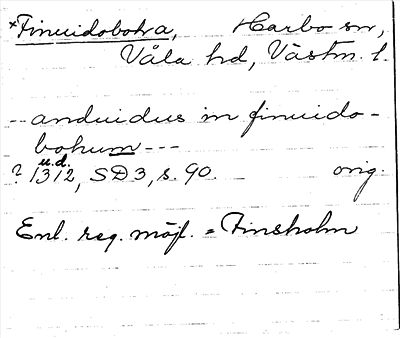 *Finuidobohra, Harbo sn,
Våla hd, Västm. l.
-- anduidus in finuido-
bohum ---
u.d.
? 1312, SD 3, s. 90. orig.
Enl. reg. möjl. = Finsholm